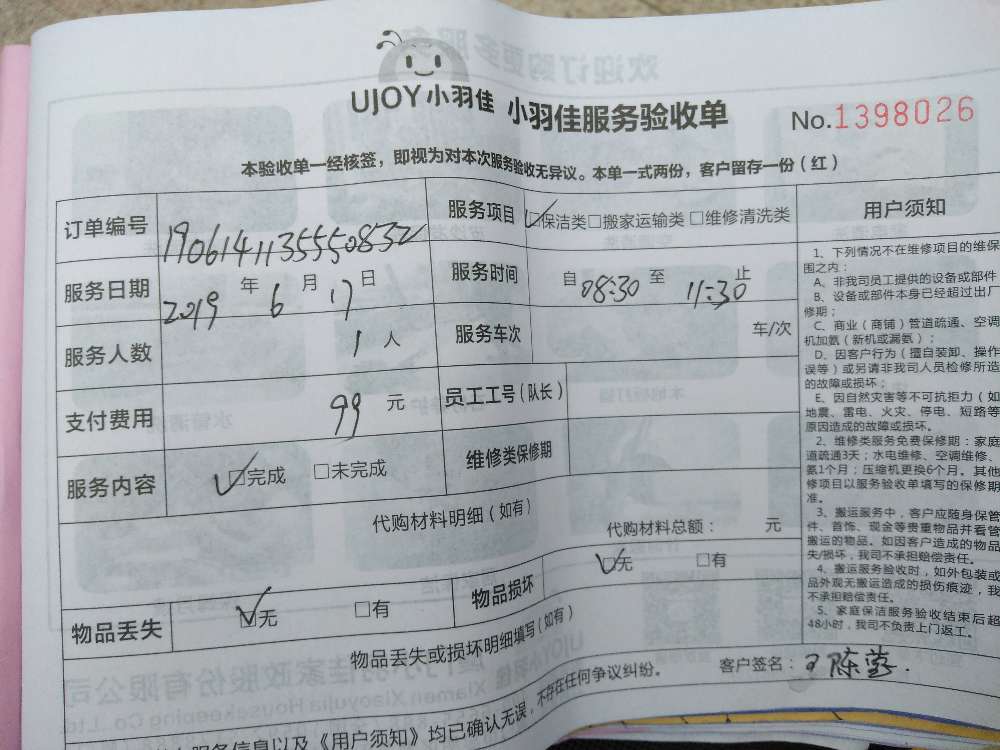 UJOY小羽佳 小羽佳服务验收单 No.1398026
本验收单一经核签，即视为对本次服务验收无异议。本单一式两份，客户留存一份（红）
订单编号 1906141135550832
服务项目 ☑保洁类 □搬家运输类 □维修清洗类
服务日期 2019年6月17日
服务时间 自08:30至11:30止
服务人数 1人
服务车次 车/次
支付费用 99元
员工工号（队长）
服务内容 ☑完成 □未完成
维修类保修期
代购材料明细（如有）
代购材料总额： 元
物品丢失 ☑无 □有
物品损坏 ☑无 □有
物品丢失或损坏明细填写（如有）
客户签名：
服务信息以及《用户须知》均已确认无误，不存在任何争议纠纷。
用户须知
1、下列情况不在维修项目的维保
围之内：
A、非我司员工提供的设备或部件
B、设备或部件本身已经超过出厂
修期；
C、商业（商铺）管道疏通、空调
机加氨（新机或漏氨）；
D、因客户行为（擅自装卸、操作
误等）或另请非我司人员检修所造
的故障或损坏；
E、因自然灾害等不可抗拒力（如
地震、雷电、火灾、停电、短路等
原因造成的故障或损坏。
2、维修类服务免费保修期：家庭
道疏通3天；水电维修、空调维修、
氨1个月；压缩机更换6个月。其他
修项目以服务验收单填写的保修期
准。
3、搬运服务中，客户应随身保管
件、首饰、现金等贵重物品并看管
搬运的物品。如因客户造成的物品
失/损坏，我司不承担赔偿责任。
4、搬运服务验收时，如外包装或
品外观无搬运造成的损伤痕迹，我
不承担赔偿责任。
5、家庭保洁服务验收结束后超
48小时，我司不负责上门返工。